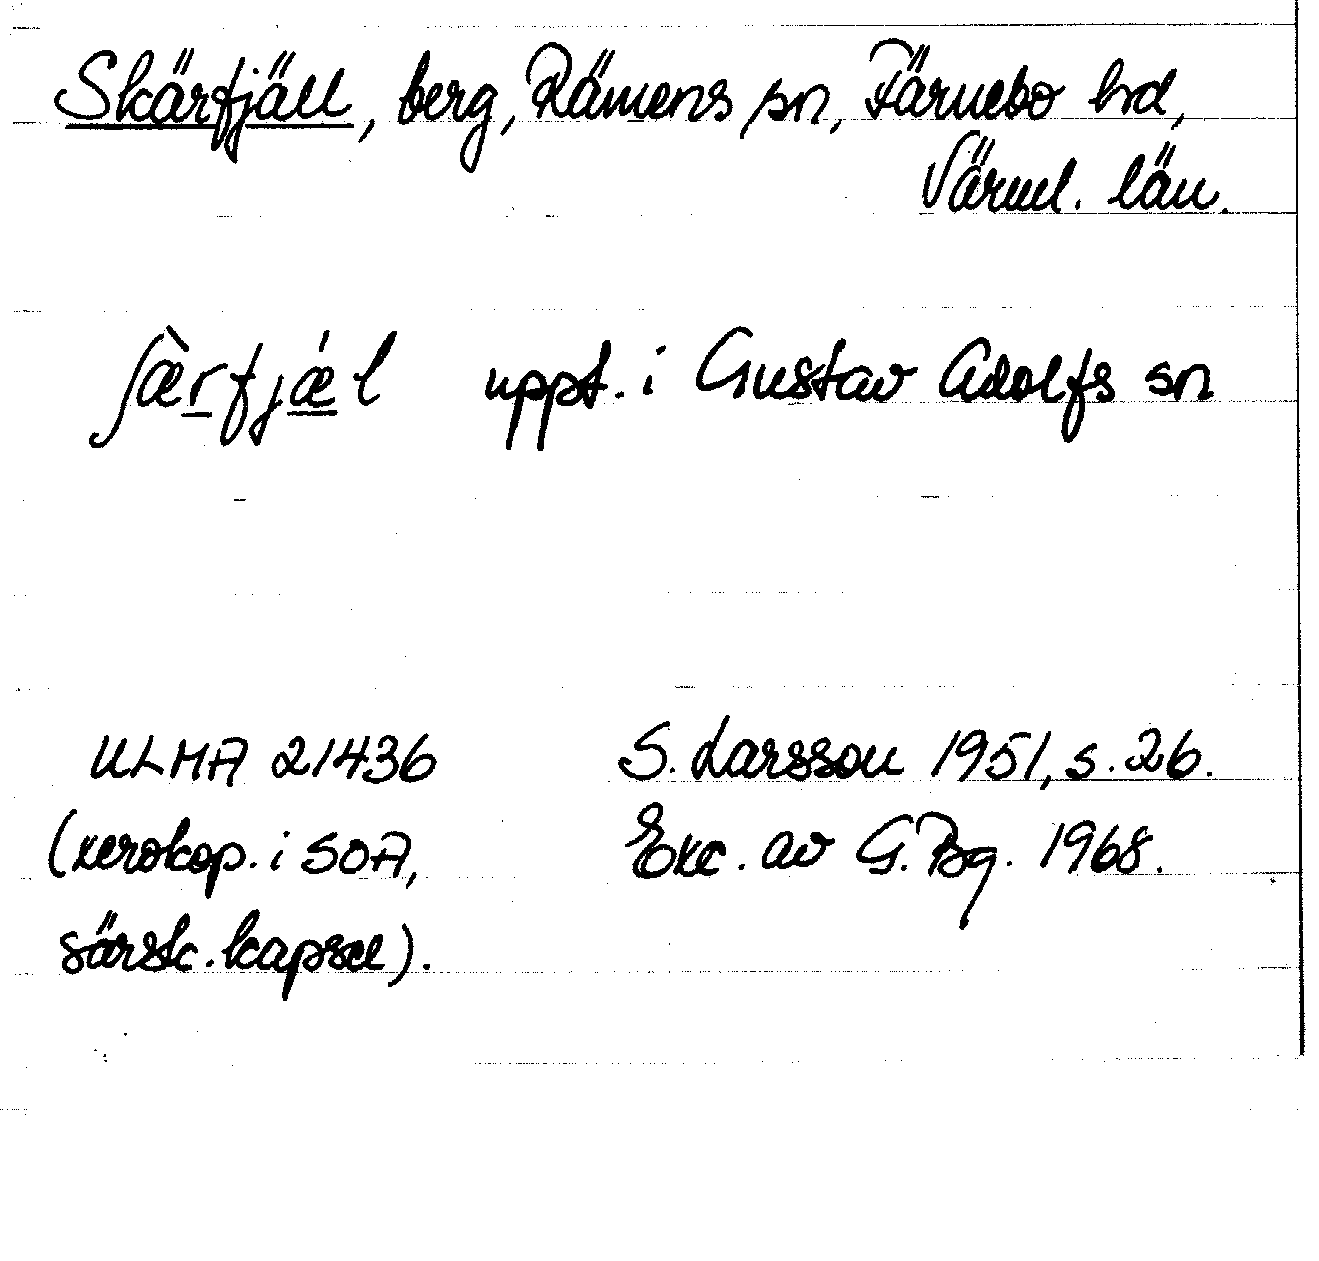 Skärfjäll, berg, Rämens sn, Färnebo hd,
Värml. län.
ʃæ̀rfjǽl uppt. i Gustav Adolfs sn
ULMA 21436 S. Larsson 1951, s. 26.
(xerokop. i SOA, Exc. av G. Bg. 1968.
särsk. kapsel).